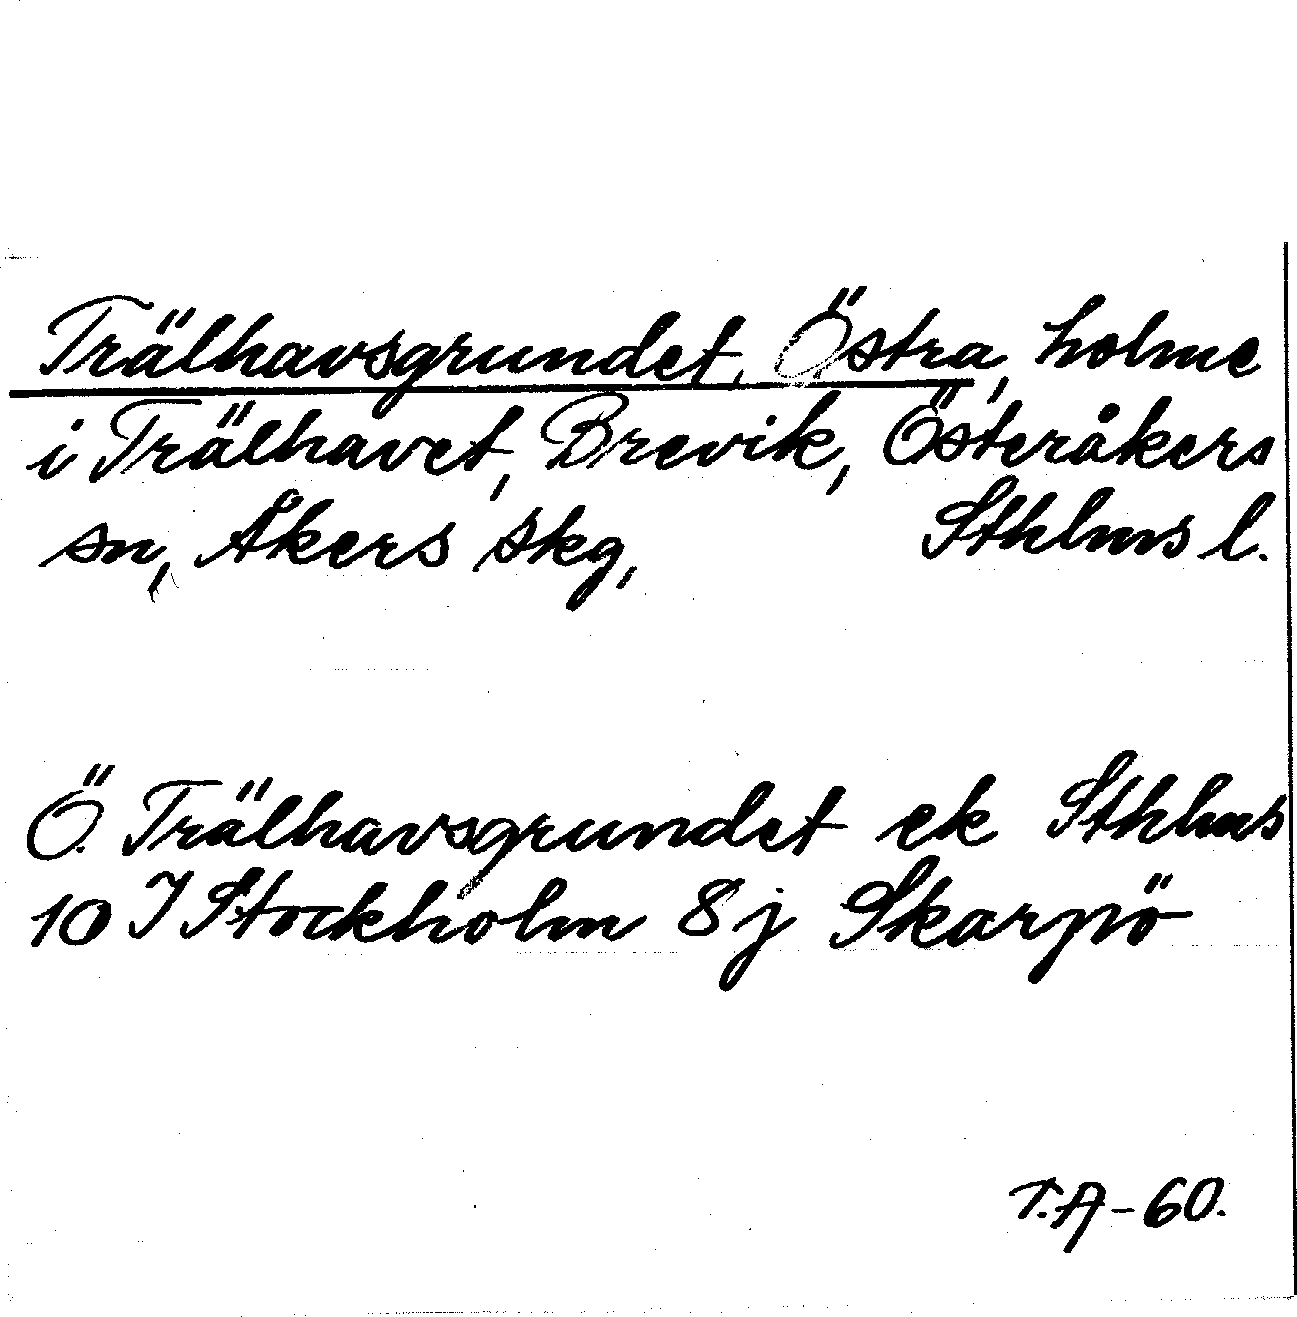 Trälhavsgrundet, Östra, holme
i Trälhavet, Brevik, Österåkers
sn, Åkers skg, Sthlms l.
Ö. Trälhavsgrundet ek Sthlms
10 I Stockholm 8j Skarpö
T.A-60.